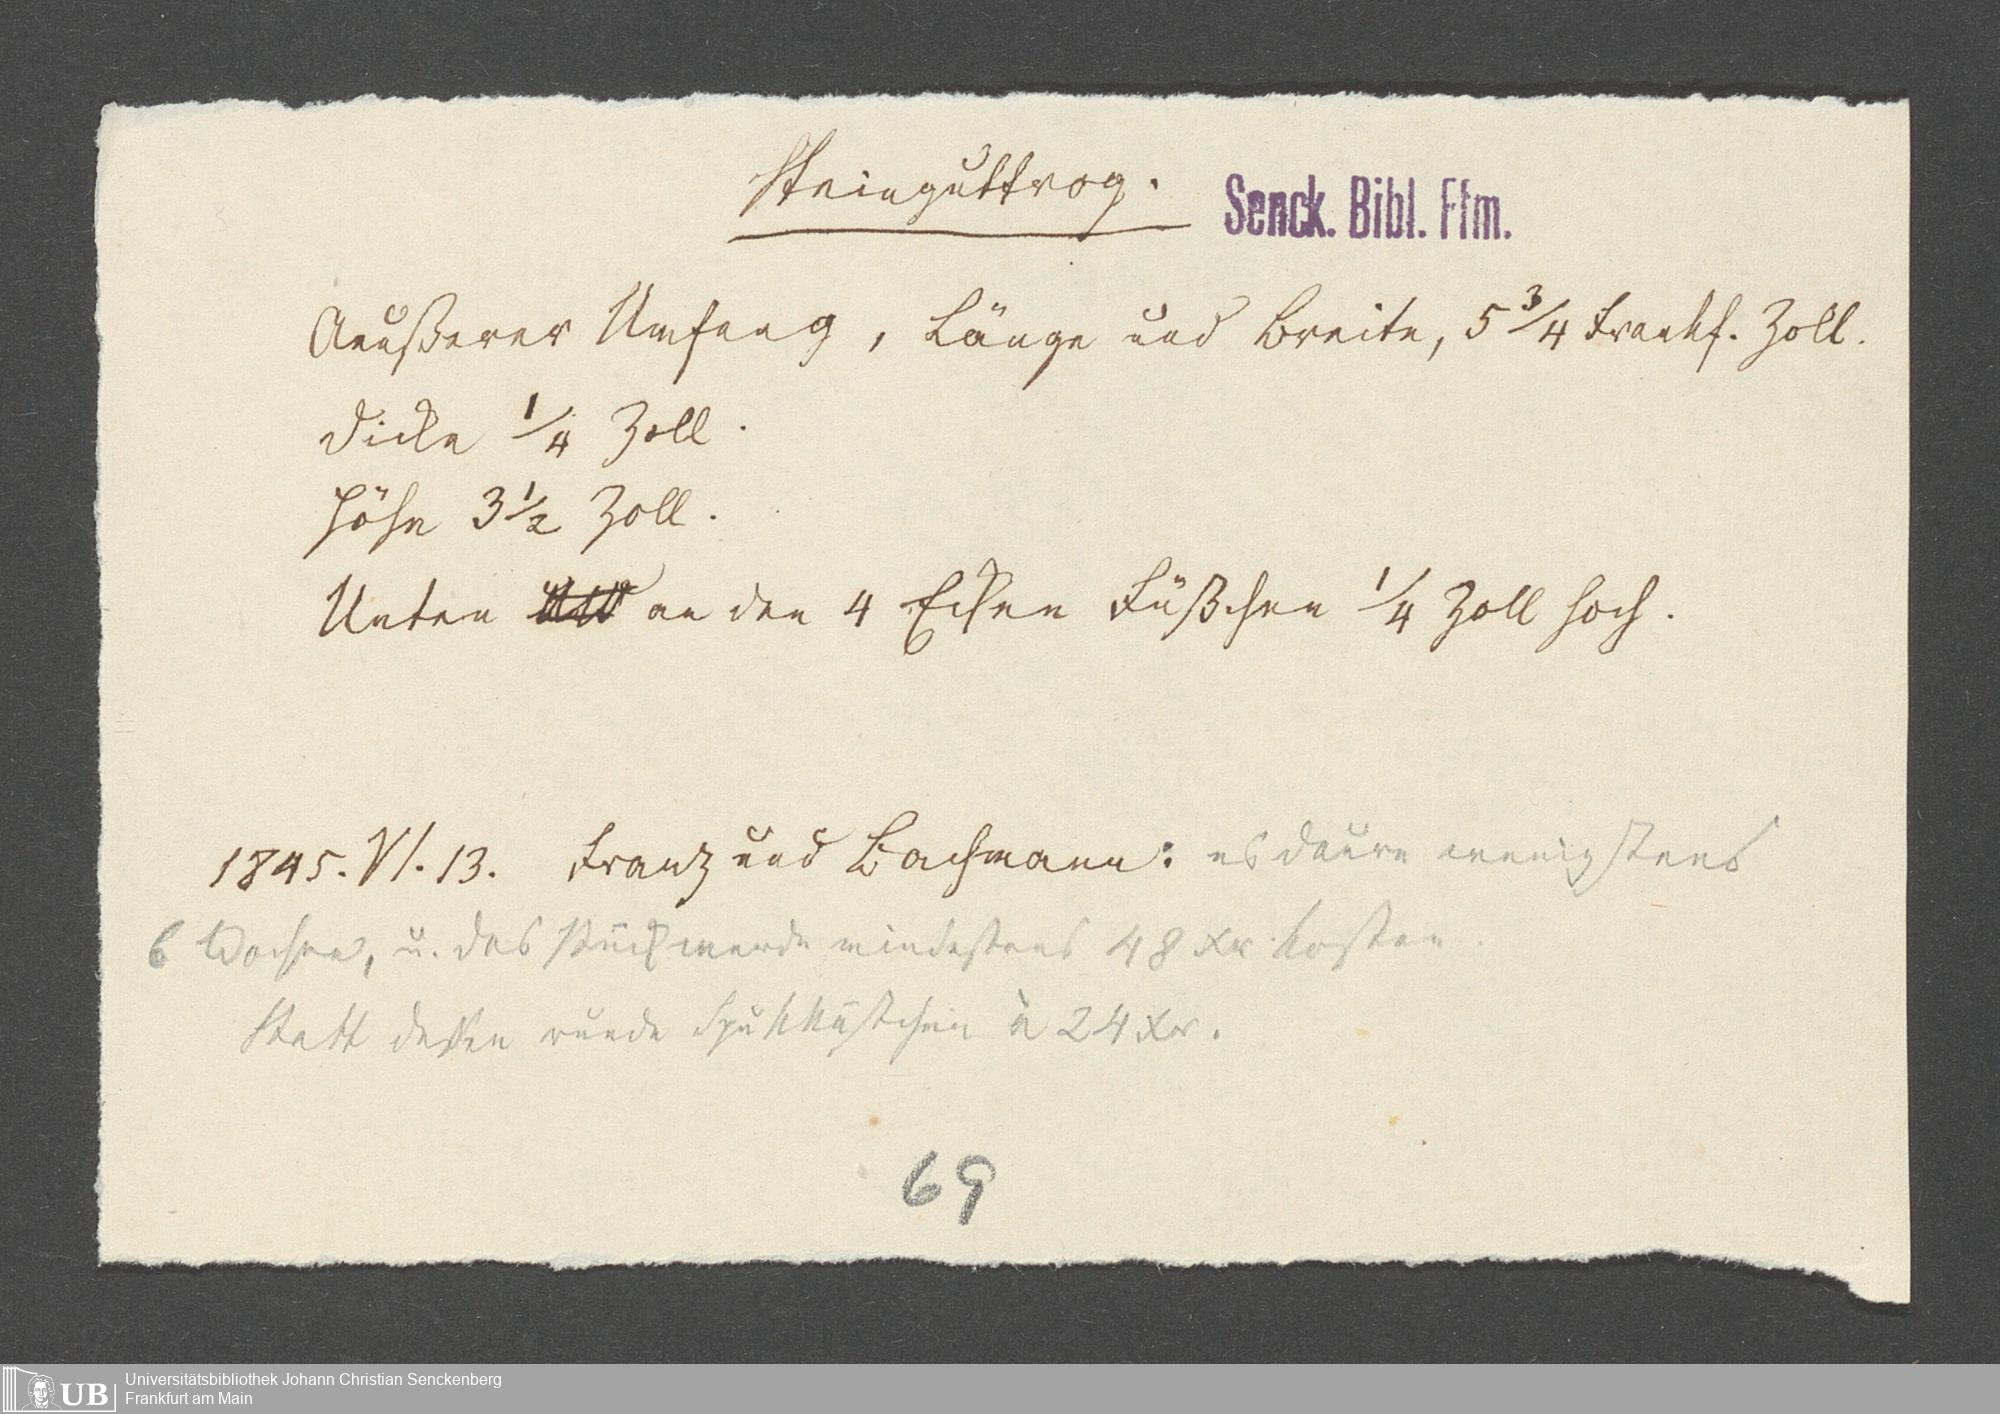 Steinguttrog.
Senck. Bibl. Ffm.
Aeußerer Umfang, Länge und Breite, 5 3/4 Frankf. Zoll.
Dicke 1/4 Zoll.
Höhe 3 1/2 Zoll.
Unten an den 4 Ecken Füßchen 1/4 Zoll hoch.
1845. VI. 13. Franz und Bachmann: es daure wenigstens
6 Wochen, u. das Stück werde mindestens 48 Xr kosten.
Statt dessen runde Spukkästchen à 24 Xr.
69
UB
Universitätsbibliothek Johann Christian Senckenberg
Frankfurt am Main